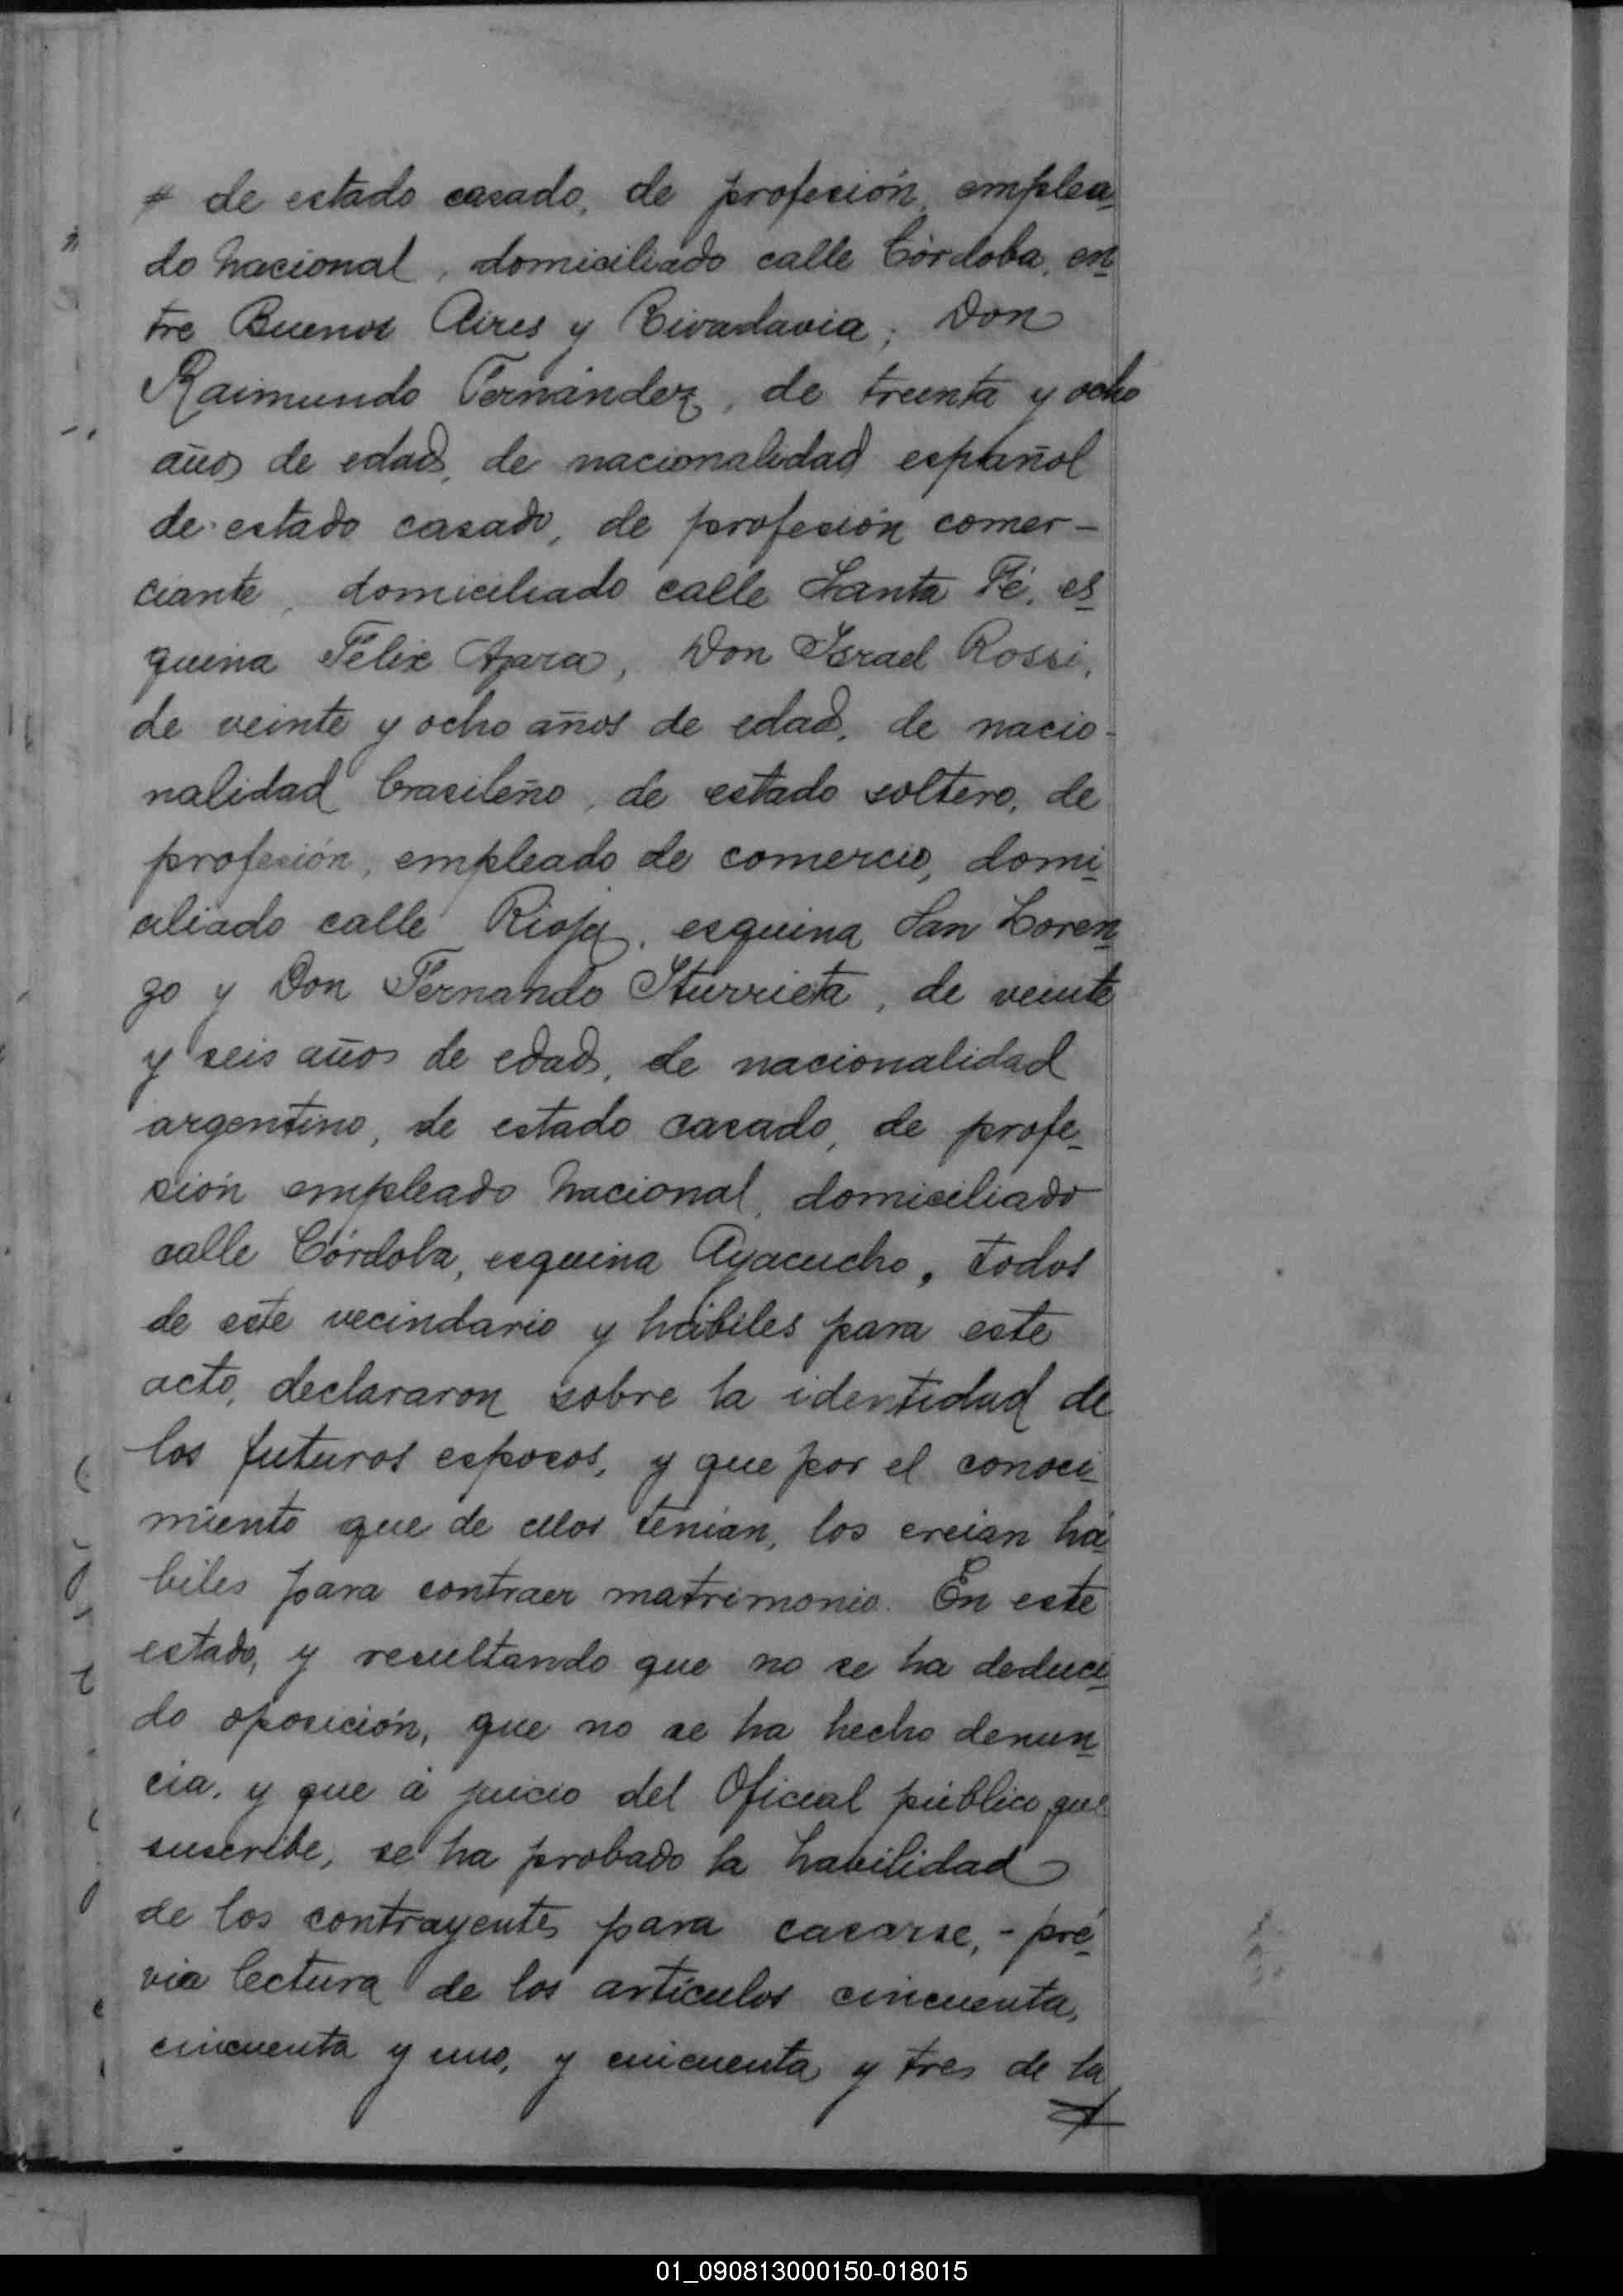 # de estado casado, de profesión, emplea
do Nacional, domiciliado calle Córdoba, en
tre Buenos Aires y Rivadavia; Don
Raimundo Fernández, de treinta y ocho
años de edad, de nacionalidad español
de estado casado, de profesión comer-
ciante, domiciliado calle Santa Fé, es
quina Felix Azara, Don Israel Rossi,
de veinte y ocho años de edad, de nacio-
nalidad brasileño, de estado soltero, de
profesión, empleado de comercio, domi
ciliado calle Rioja, esquina San Loren
zo y Don Fernando Iturrieta, de veinte
y seis años de edad, de nacionalidad
argentino, de estado casado, de profe-
sión empleado Nacional, domiciliado
calle Córdoba, esquina Ayacucho, todos
de este vecindario y hábiles para este
acto, declararon sobre la identidad de
los futuros esposos, y que por el conoci
miento que de ellos tenían, los creían há
biles para contraer matrimonio. En este
estado, y resultando que no se ha deduci
do oposición, que no se ha hecho denun
cia, y que á juicio del Oficial público que
suscribe, se ha probado la habilidad
de los contrayentes para casarse, - pré
via lectura de los artículos cincuenta,
cincuenta y uno, y cincuenta y tres de la
01_090813000150-018015